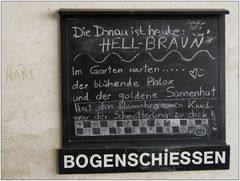 Die Donau ist heute:
HELL-BRAUN
HANS
Im Garten warten.....
der blühende Phlox
und der goldene Sonnenhut
Hat das Blümchen einen Knick-
war der Schmetterling zu dick!
BOGENSCHiESSEN